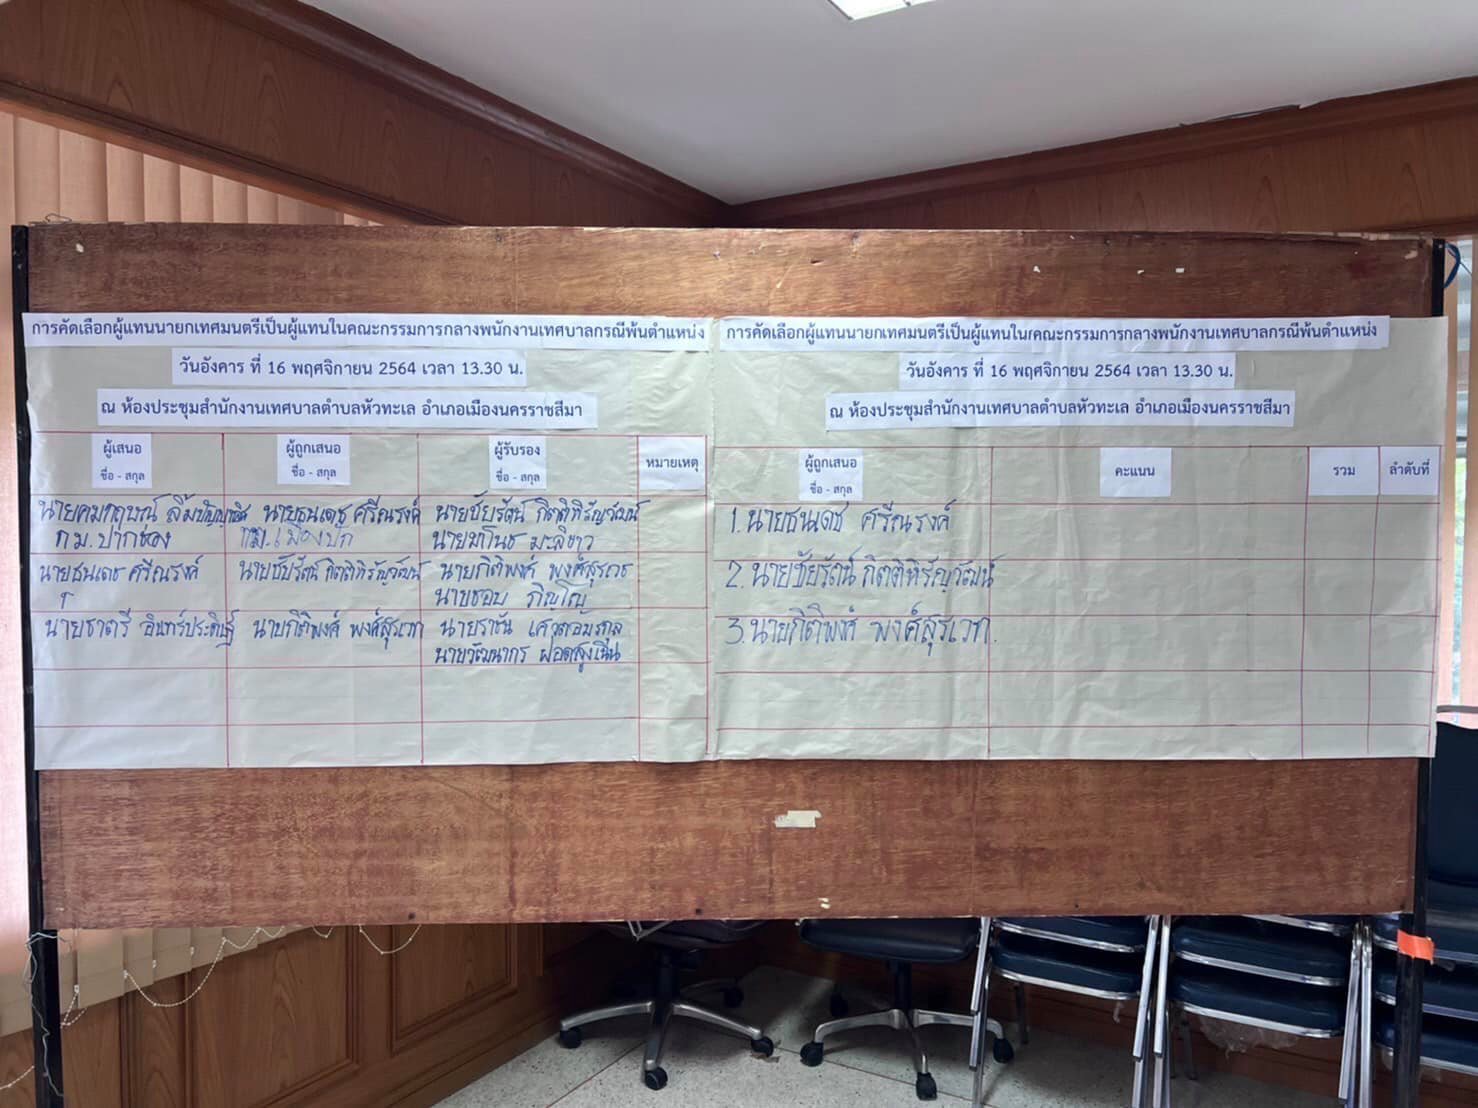 การคัดเลือกผู้แทนนายกเทศมนตรีเป็นผู้แทนในคณะกรรมการกลางพนักงานเทศบาลกรณีพ้นตำแหน่ง
วันอังคาร ที่ 16 พฤศจิกายน 2564 เวลา 13.30 น.
ณ ห้องประชุมสำนักงานเทศบาลตำบลหัวทะเล อำเภอเมืองนครราชสีมา
ผู้เสนอ ผู้ถูกเสนอ ผู้รับรอง หมายเหตุ
ชื่อ - สกุล ชื่อ - สกุล ชื่อ - สกุล
นายธนเดช ศรีณรงค์ นายชัยรัตน์ กิตติหิรัญวัฒน์
ทม.ปากช่อง ทม.เมืองปัก นายมาโนช มะลิขาว
นายธนเดช ศรีณรงค์ นายชัยรัตน์ กิตติหิรัญวัฒน์ นายกิติพงศ์ พงศ์สุรเวท
นายชอบ
นายธาตรี อินทร์ประดิษฐ์ นายกิติพงศ์ พงศ์สุรเวท นายราชัน
นายวัฒนากร ฝอดสูงเนิน
การคัดเลือกผู้แทนนายกเทศมนตรีเป็นผู้แทนในคณะกรรมการกลางพนักงานเทศบาลกรณีพ้นตำแหน่ง
วันอังคาร ที่ 16 พฤศจิกายน 2564 เวลา 13.30 น.
ณ ห้องประชุมสำนักงานเทศบาลตำบลหัวทะเล อำเภอเมืองนครราชสีมา
ผู้ถูกเสนอ คะแนน รวม ลำดับที่
ชื่อ - สกุล
1. นายธนเดช ศรีณรงค์
2. นายชัยรัตน์ กิตติหิรัญวัฒน์
3. นายกิติพงศ์ พงศ์สุรเวท.